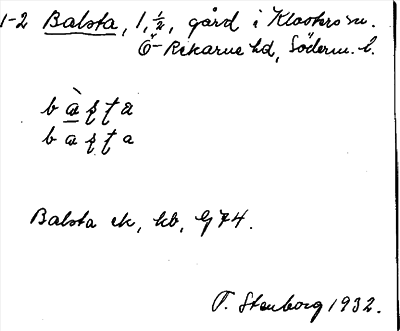 1-2 Balsta, 1, 1/2, gård i Klosters sn.
Ö-Rekarne hd, Söderm. l.
Balsta ek, kb, G74.
T. Stenborg 1932.